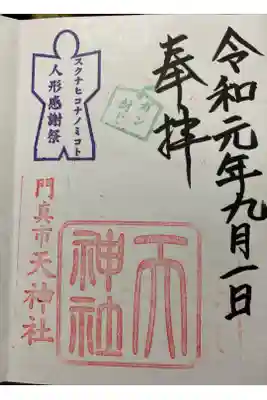 令和元年九月一日
奉拝
ガン
封じ
スクナヒコナノミコト
人形感謝祭
門真市天神社
天神社